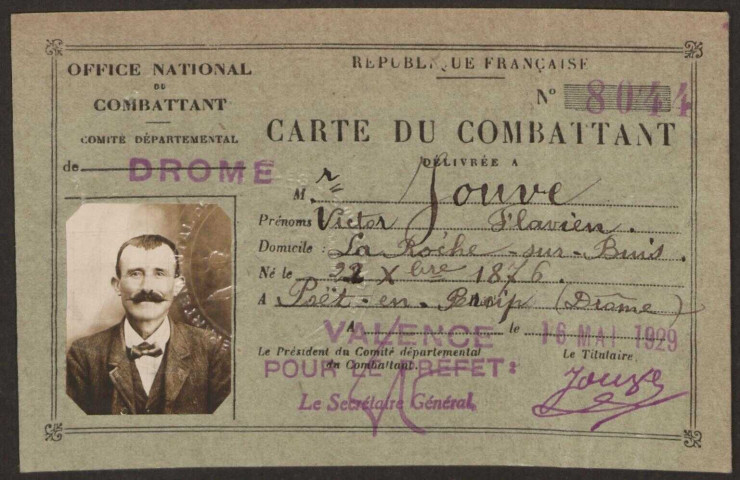 OFFICE NATIONAL
DU
COMBATTANT
COMITÉ DÉPARTEMENTAL
de DROME
RÉPUBLIQUE FRANÇAISE
N° 8044
CARTE DU COMBATTANT
DÉLIVRÉE A
M r Jouve
Prénoms Victor Flavien.
Domicile : La Roche-sur-Buis.
Né le 22 Xbre 1876.
A Poët-en-Percip (Drôme)
A VALENCE le 16 MAI 1929
Le Président du Comité départemental
du Combattant.
POUR LE PREFET:
Le Secrétaire Général,
Le Titulaire,
Jouve